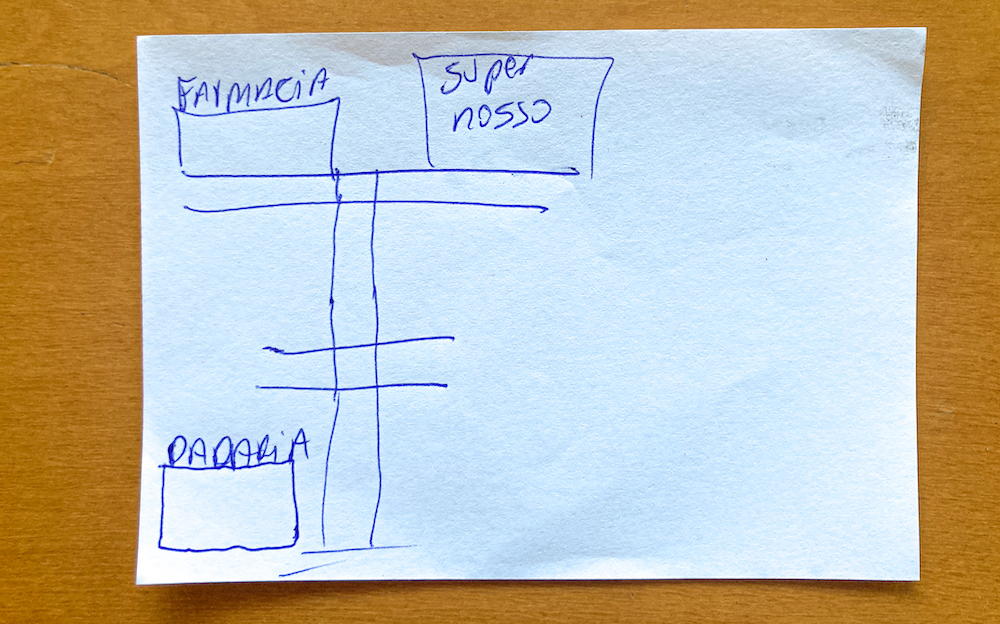 FARMACIA
super
nosso
PADARIA